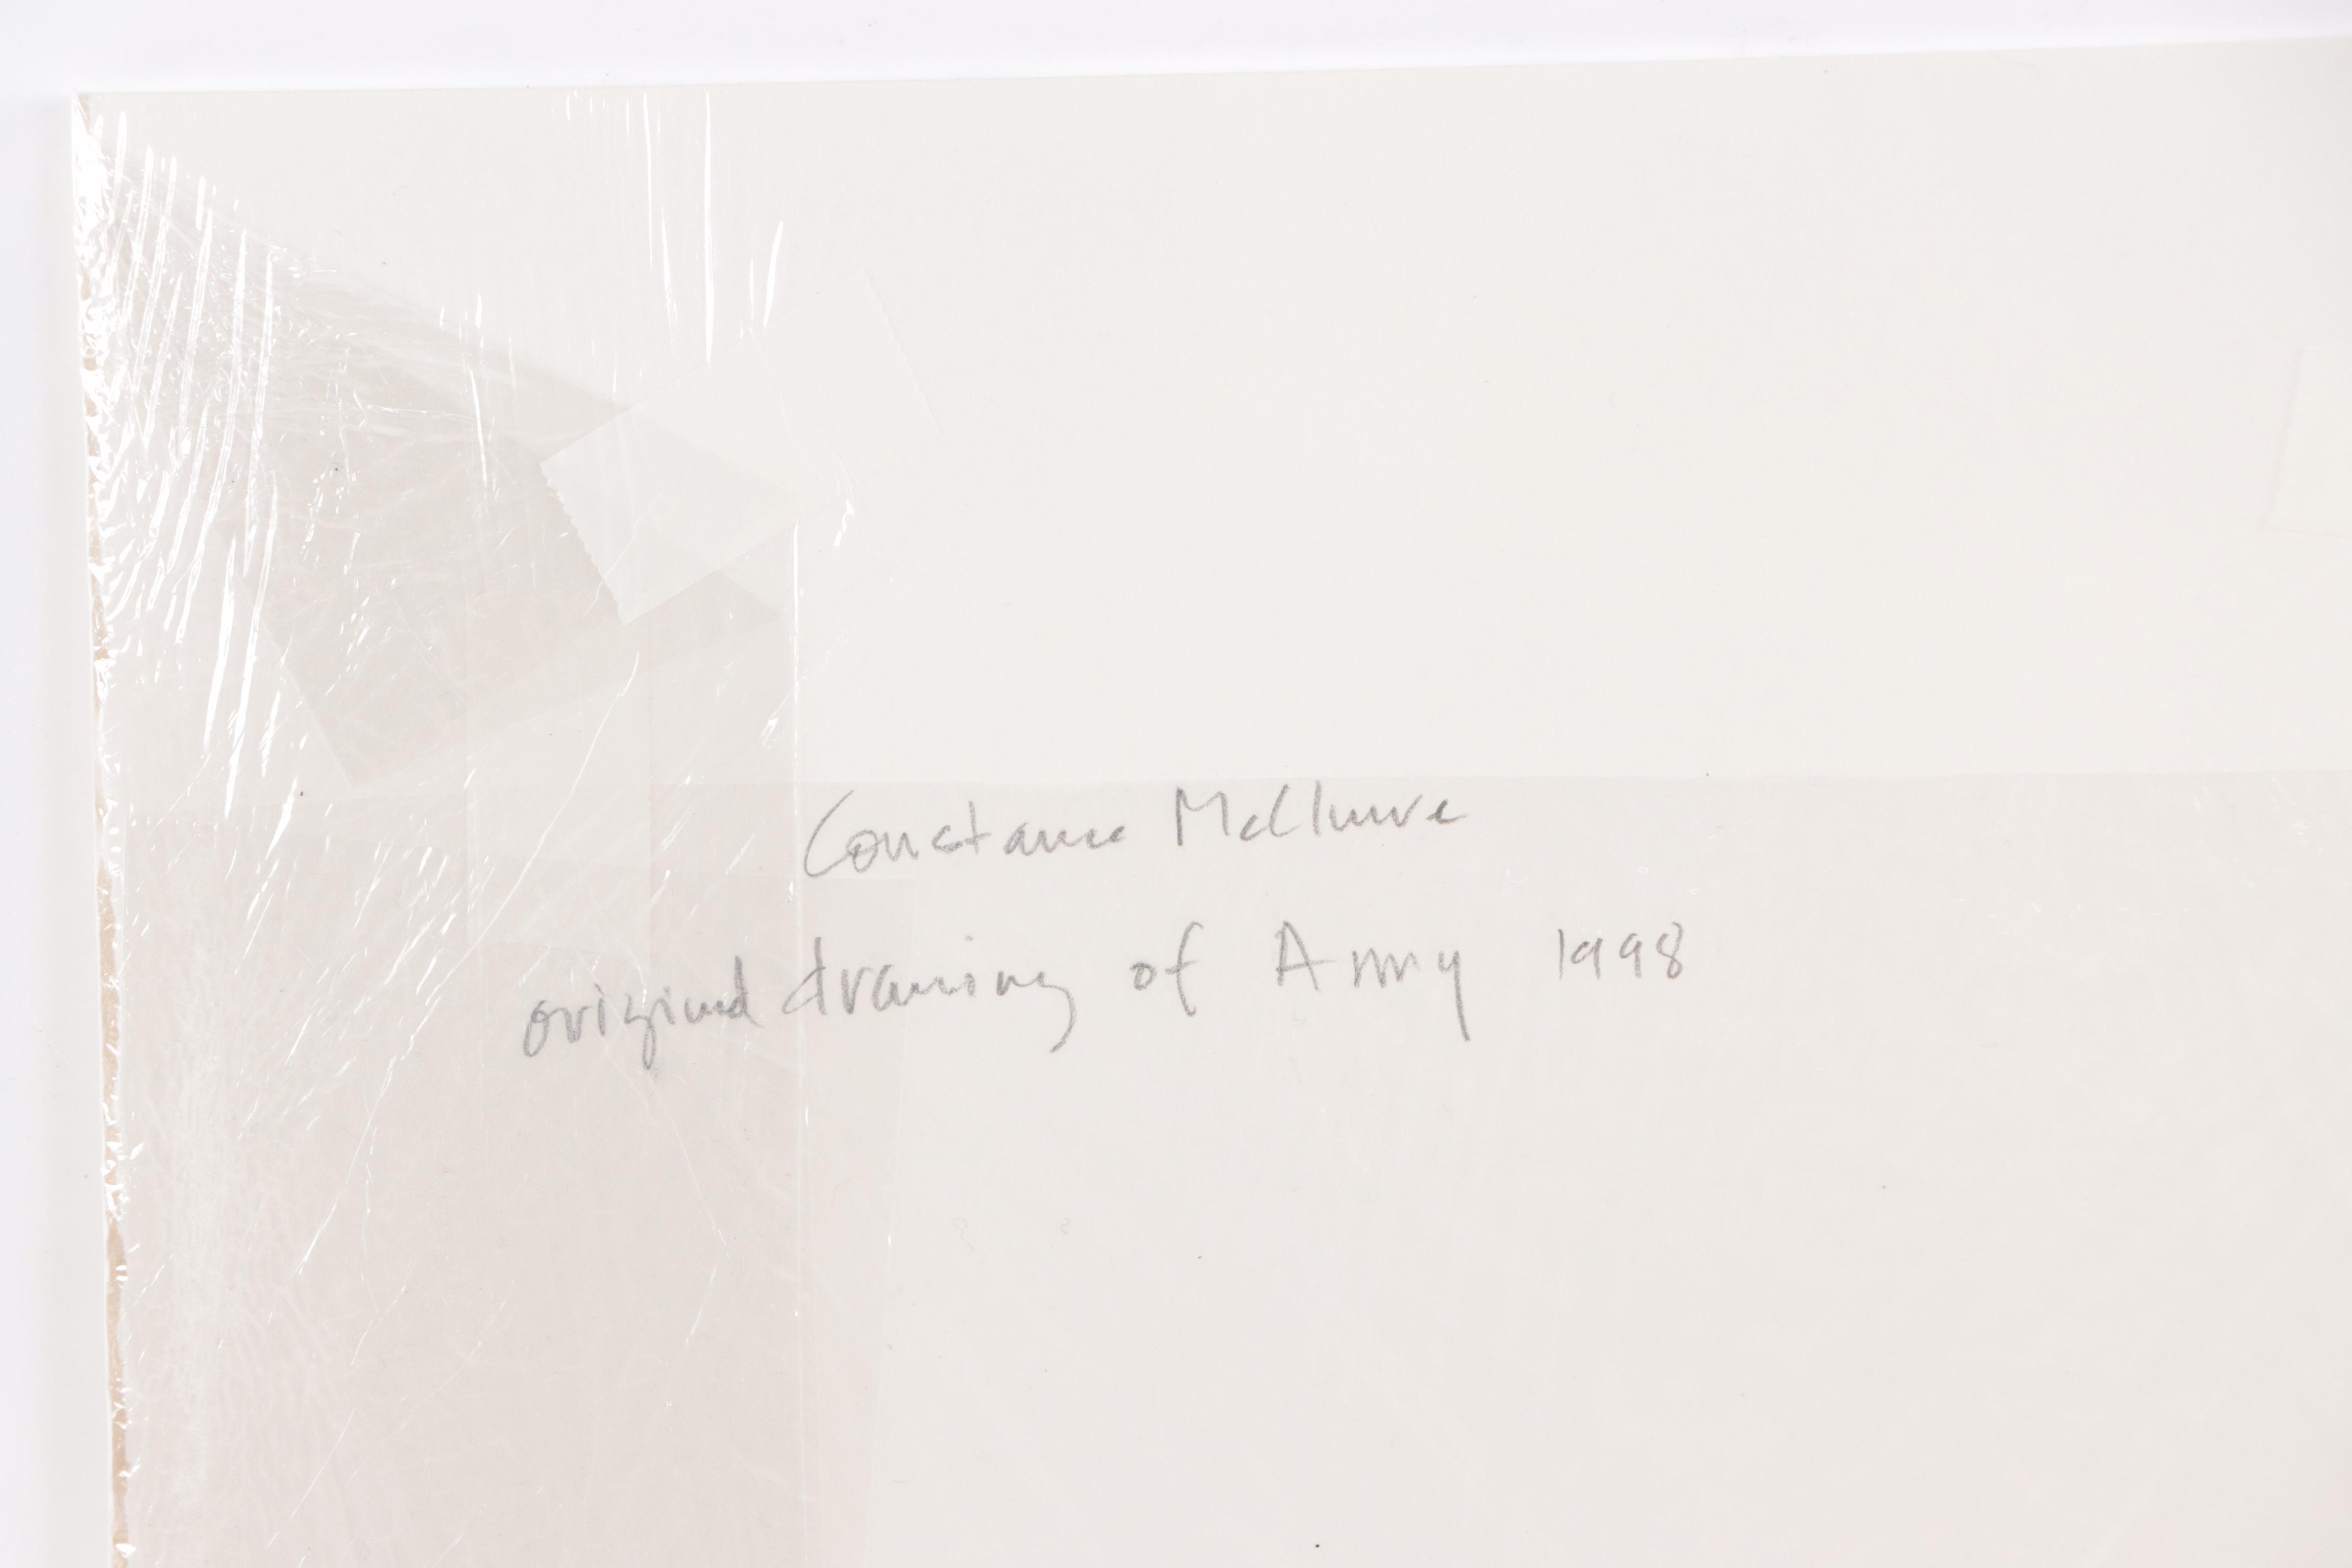 Constance McClure
original drawing of Amy 1998